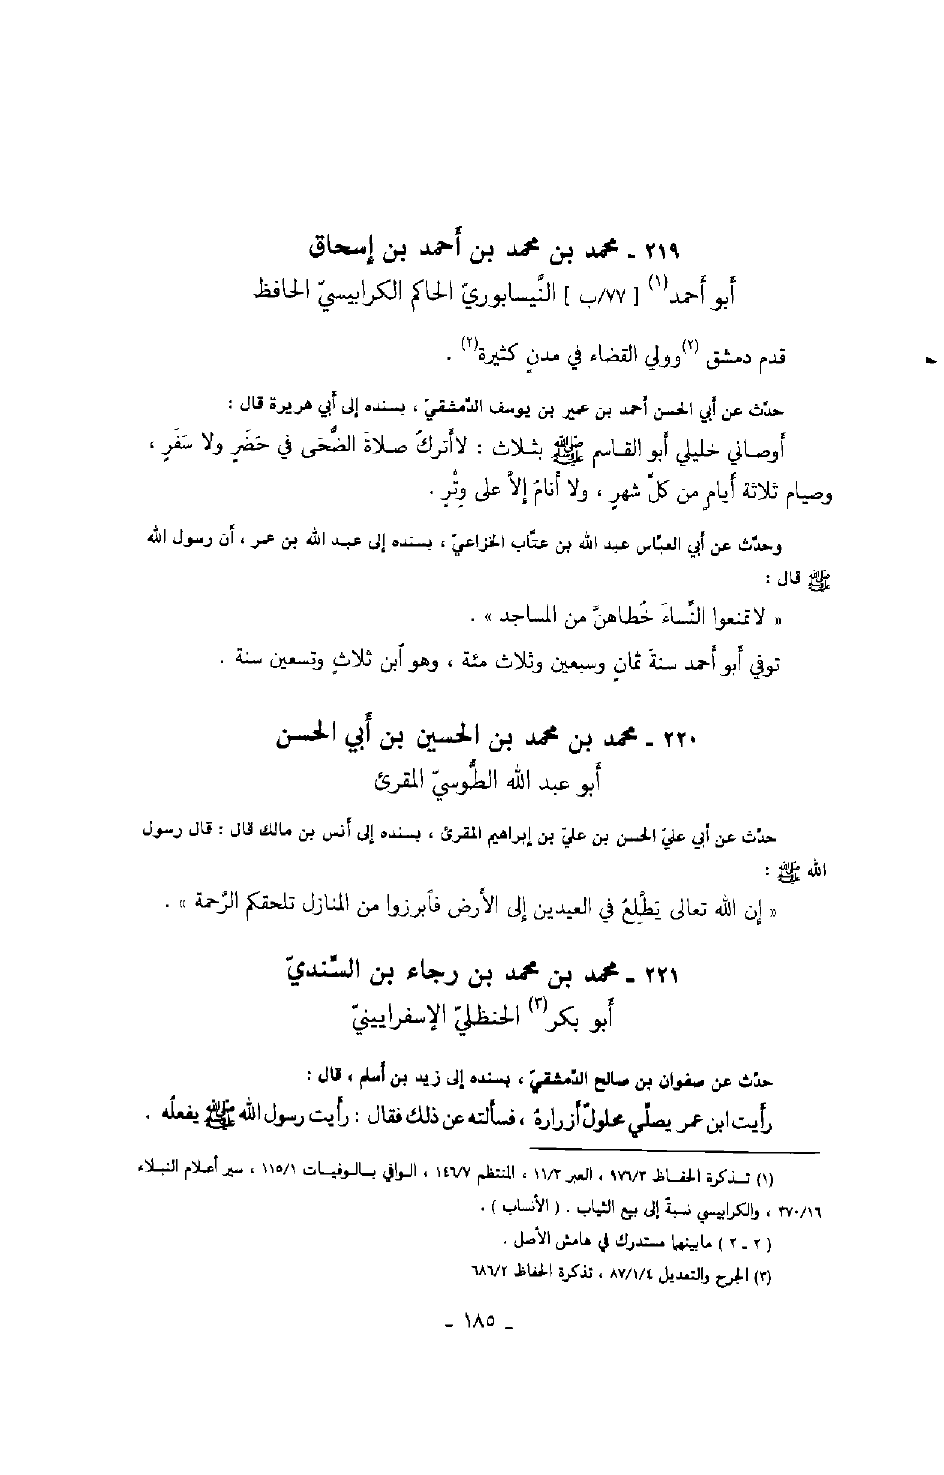 ٢١٩ ـ محمد بن محمد بن أحمد بن إسحاق
أبو أحمد(١) [ ٧٧/ب ] النَّيسابوريّ الحاكم الكرابيسيّ الحافظ
قدم دمشق (٢)وولي القضاء في مدنٍ كثيرة(٢) .
حدّث عن أبي الحسن أحمد بن عمير بن يوسف الدّمشقيّ ، بسنده إلى أبي هريرة قال :
أوصاني خليلي أبو القاسم ﷺ بثلاث : لاأتركُ صلاةَ الضُّحَى في حَضَرٍ ولا سَفَرٍ ،
وصيام ثلاثة أيامٍ من كلّ شهرٍ ، ولا أنامُ إلاّ على وِتْرٍ .
وحدّث عن أبي العبّاس عبد الله بن عتّاب الخزاعيّ ، بسنده إلى عبد الله بن عمر ، أن رسول الله
ﷺ قال :
« لاتمنعوا النِّساءَ خُطاهنَّ من المساجد » .
توفي أبو أحمد سنةَ ثمانٍ وسبعين وثلاث مئة ، وهو ٱبن ثلاثٍ وتسعين سنة .
٢٢٠ ـ محمد بن محمد بن الحسين بن أبي الحسن
أبو عبد الله الطُّوسيّ المقرئ
حدّث عن أبي عليّ الحسن بن عليّ بن إبراهيم المقرئ ، بسنده إلى أنس بن مالك قال : قال رسول
الله ﷺ :
« إن الله تعالى يَطَّلِعُ في العيدين إلى الأرض فٱبرزوا من المنازل تلحقكم الرَّحمة » .
٢٢١ ـ محمد بن محمد بن رجاء بن السِّنديّ
أبو بكر(٣) الحنظليّ الإسفرايينيّ
حدّث عن صفوان بن صالح الدّمشقيّ ، بسنده إلى زيد بن أسلم ، قال :
رأيت ابن عمر يصلّي محلولٌ أزرارهُ ، فسألته عن ذلك فقال : رأيت رسول الله ﷺ يفعلُه .
(١) تذكرة الحفاظ ٩٧٦/٣ ، العبر ١١/٣ ، المنتظم ١٤٦/٧ ، الوافي بالوفيات ١١٥/١ ، سير أعلام النبلاء
٣٧٠/١٦ ، والكرابيسي نسبةً إلى بيع الثياب . ( الأنساب ) .
( ٢ ـ ٢ ) مابينها مستدرك في هامش الأصل .
(٣) الجرح والتعديل ٨٧/١/٤ ، تذكرة الحفاظ ٦٨٦/٢
ـ ١٨٥ ـ